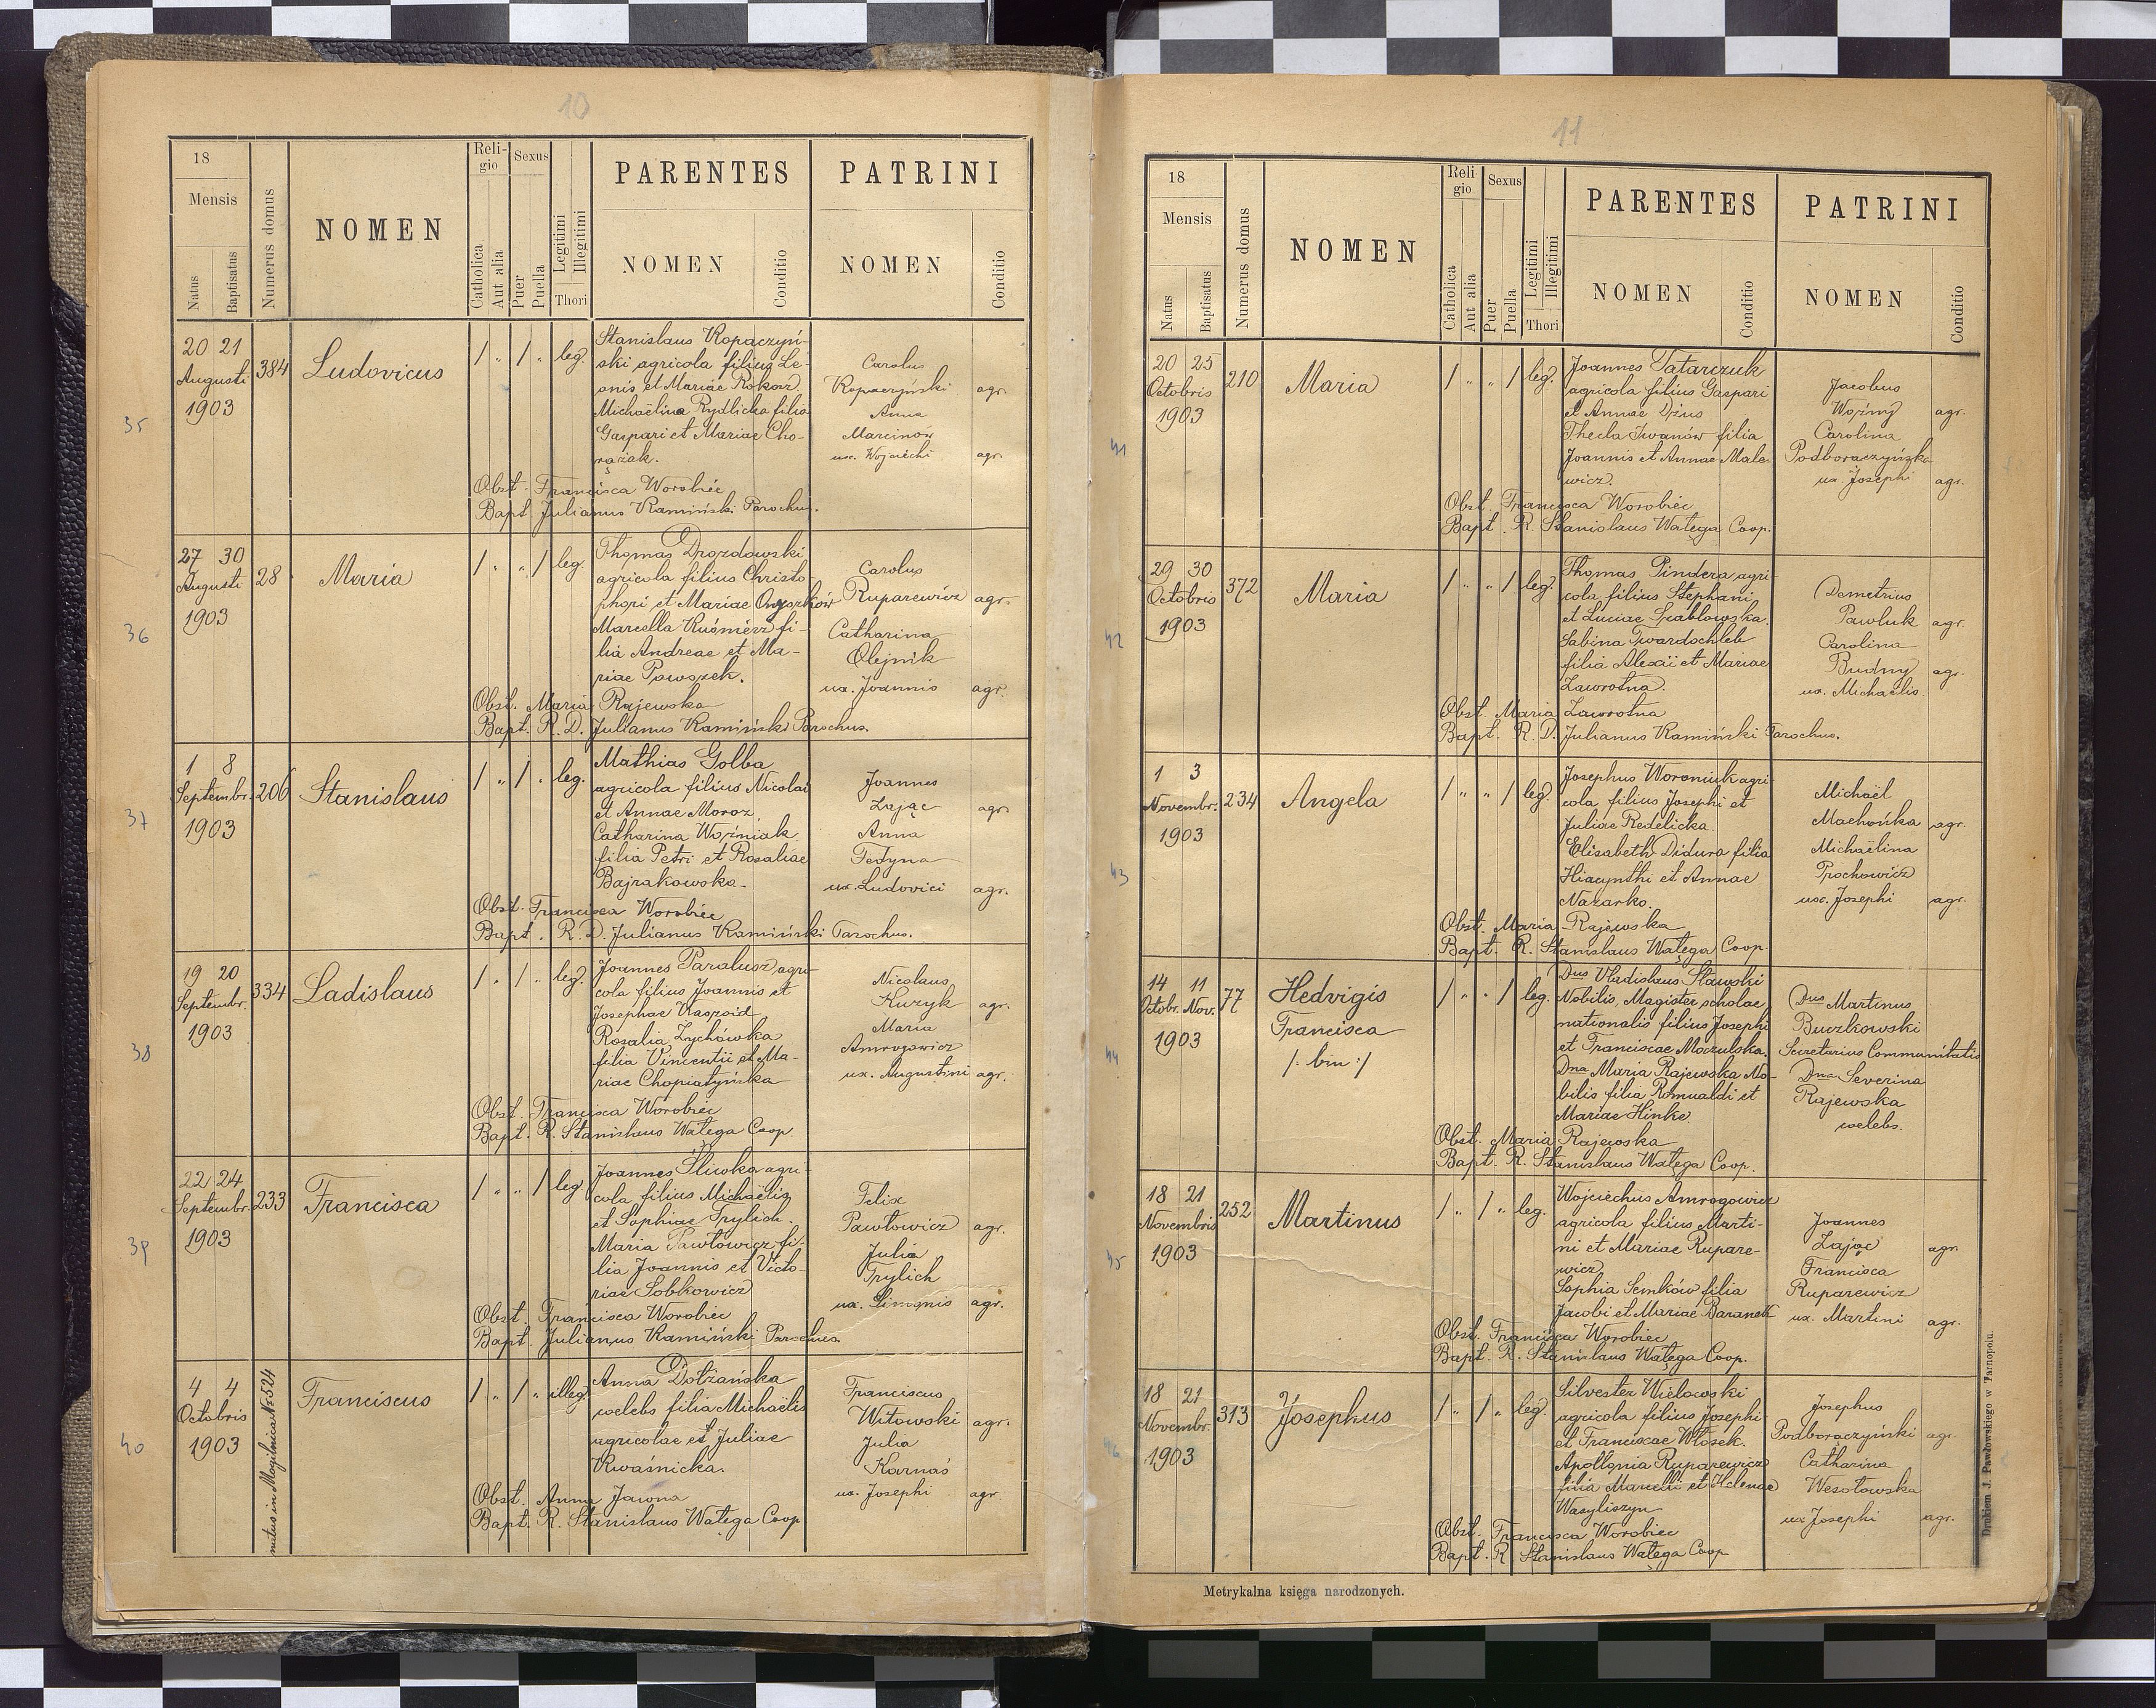 10
18
Mensis
Natus
Baptisatus
Numerus domus
NOMEN
Reli-
gio
Catholica
Aut alia
Sexus
Puer
Puella
Legitimi
Illegitimi
Thori
PARENTES
NOMEN
Conditio
PATRINI
NOMEN
Conditio
35
20 21
Augusti
1903
384
Ludovicus
/ " / " leg.
Stanislaus Kopaczyń-
ski agricola filius Le-
onis et Mariae Rokosz
Michaëlina Rydlicka filia
Gaspari et Mariae Cho-
rąziak.
Carolus
Kopaczyński agr.
Anna
Marcinów
ux. Wojciechi agr.
Obst. Francisca Worobiec
Bapt. Julianus Kamiński Parochus.
36
27 30
Augusti
1903
28
Maria
/ " " / leg.
Thomas Drozdowski
agricola filius Christo
phori et Mariae
Marcella Kuśnierz fi-
lia Andreae et Ma-
riae Powszek.
Carolus
Ruparewicz agr.
Catharina
Olejnik
ux. Joannis agr.
Obst. Maria Rajewska
Bapt. R. D. Julianus Kamiński Parochus.
37
1 8
Septembr.
1903
206
Stanislaus
/ " / " leg.
Mathias Golba
agricola filius Nicolai
et Annae Moroz
Catharina Woźniak
filia Petri et Rosaliae
Bajrakowska-
Joannes
Zając agr.
Anna
Fedyna
ux. Ludovici agr.
Obst. Francisca Worobiec
Bapt. R. D. Julianus Kamiński Parochus.
38
19 20
Septembr.
1903
334
Ladislaus
/ " / " leg.
Joannes Paralusz agri-
cola filius Joannis et
Josephae Kaspoid
Rosalia Zychówka
filia Vincentii et Ma-
riae Chopiatyńska
Nicolaus
Kuzyk agr.
Maria
Amrogowicz
ux. Augustini agr.
Obst. Francisca Worobiec
Bapt. R. Stanislaus Wałęga Coop.
39
22 24
Septembr.
1903
233
Francisca
/ " " / leg
Joannes Śliwka agri-
cola filius Michaëlis
et Sophiae Trylich.
Maria Pawłowicz fi-
lia Joannis et Victo-
riae Sobkowicz
Felix
Pawłowicz agr.
Julia
Trylich
ux. Simonis agr.
Obst. Francisca Worobiec
Bapt. Julianus Kamiński Parochus.
40
4 4
Octobris
1903
natus in Mogilnica № 524
Franciscus
/ " / " illeg.
Anna Dołżańska
coelebs filia Michaëlis
agricolae et Juliae
Kwaśnicka.
Franciscus
Witowski agr.
Julia
Karnaś
ux. Josephi agr.
Obst. Anna Jawna
Bapt. R. Stanislaus Wałęga Coop
11
18
Mensis
Natus
Baptisatus
Numerus domus
NOMEN
Reli-
gio
Catholica
Aut alia
Sexus
Puer
Puella
Legitimi
Illegitimi
Thori
PARENTES
NOMEN
Conditio
PATRINI
NOMEN
Conditio
41
20 25
Octobris
1903
210
Maria
/ " " / leg.
Joannes Tatarczuk
agricola filius Gaspari
et Annae Dżus
Thecla Iwanów filia
Joannis et Annae Male-
wicz.
Jacobus
Woźny agr.
Carolina
Podboraczyńska
ux. Josephi agr.
Obst Francisca Worobiec
Bapt. R. Stanislaus Wałęga Coop.
42
29 30
Octobris
1903
372
Maria
/ " " / leg.
Thomas Pindera agri-
cola filius Stephani
et Luciae Grablowska.
Sabina Twardochleb
filia Alexii et Mariae
Zawrotna.
Demetrius
Pawluk agr.
Carolina
Budny agr.
ux. Michaëlis.
Obst. Maria Zawrotna
Bapt. R. D. Julianus Kamiński Parochus.
43
1 3
Novembr.
1903
234
Angela
/ " " / leg.
Josephus Woroniuk agri-
cola filius Josephi et
Juliae Redelicka.
Elisabeth Didura filia
Hiacynthi et Annae
Nazarko.
Michaël
Machońka agr.
Michaëlina
Prochowicz
ux. Josephi agr.
Obst. Maria Rajewska
Bapt. R. Stanislaus Wałęga Coop.
44
14 11
Octobr. Nov.
1903
77
Hedvigis
Francisca
/: bin :/
/ " " / leg.
Dnus Vladislaus Sławski
Nobilis, Magister scholae
nationalis filius Josephi
et Franciscae Moczulska.
Dna Maria Rajewska No-
bilis filia Romualdi et
Mariae Hinke.
Dnus Martinus
Buczkowski
Secretarius Communitatis
Dna Severina
Rajewska
coelebs.
Obst. Maria Rajewska
Bapt. R. Stanislaus Wałęga Coop.
45
18 21
Novembris
1903
252
Martinus
/ " / " leg.
Wojciechus Amrogowicz
agricola filius Marti-
ni et Mariae Rupare-
wicz
Sophia Semków filia
Jacobi et Mariae Baranek
Joannes
Zając agr.
Francisca
Ruparewicz
ux. Martini agr.
Obst. Francisca Worobiec
Bapt. R. Stanislaus Wałęga Coop.
46
18 21
Novembr.
1903
313
Josephus
/ " / " leg.
Silvester Wielowski
agricola filius Josephi
et Franciscae Włosek.
Apollonia Ruparewicz
filia Marcelli et Helenae
Wasyliszyn
Josephus
Podboraczyński agr.
Catharina
Wesołowska
ux Josephi agr.
Obst. Francisca Worobiec
Bapt. R. Stanislaus Wałęga Coop
Metrykalna księga narodzonych.
Drukiem J. Pawłowskiego w Tarnopolu.